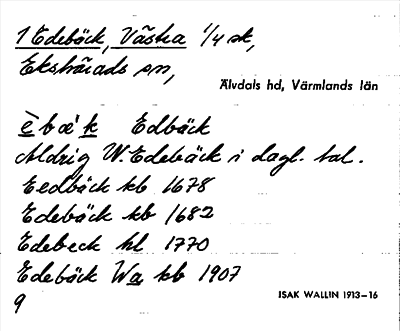 1 Edebäck, Västra 1/4 sk,
Ekshärads sn,
Älvdals hd, Värmlands län
è b æ' k Edbäck
Aldrig W. Edebäck i dagl. tal.
Eedbäck kb 1678
Edebäck kb 1682
Edebeck hl 1770
Edebäck Wa kb 1907
9
ISAK WALLIN 1913–16